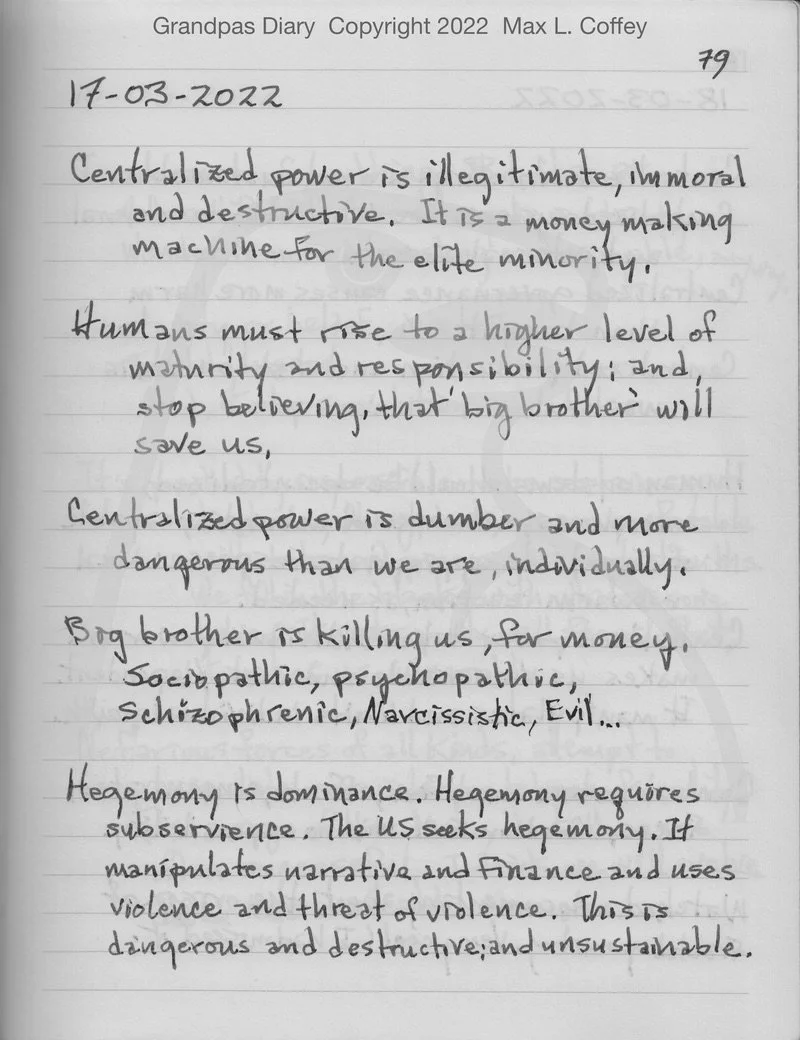 Grandpas Diary Copyright 2022 Max L. Coffey
79
17-03-2022
Centralized power is illegitimate, immoral
and destructive. It is a money making
machine for the elite minority.
Humans must rise to a higher level of
maturity and responsibility; and,
stop believing, that 'big brother' will
save us,
Centralized power is dumber and more
dangerous than we are, individually.
Big brother is killing us, for money.
Sociopathic, psychopathic,
Schizophrenic, Narcissistic, Evil...
Hegemony is dominance. Hegemony requires
subservience. The US seeks hegemony. It
manipulates narrative and finance and uses
violence and threat of violence. This is
dangerous and destructive; and unsustainable.